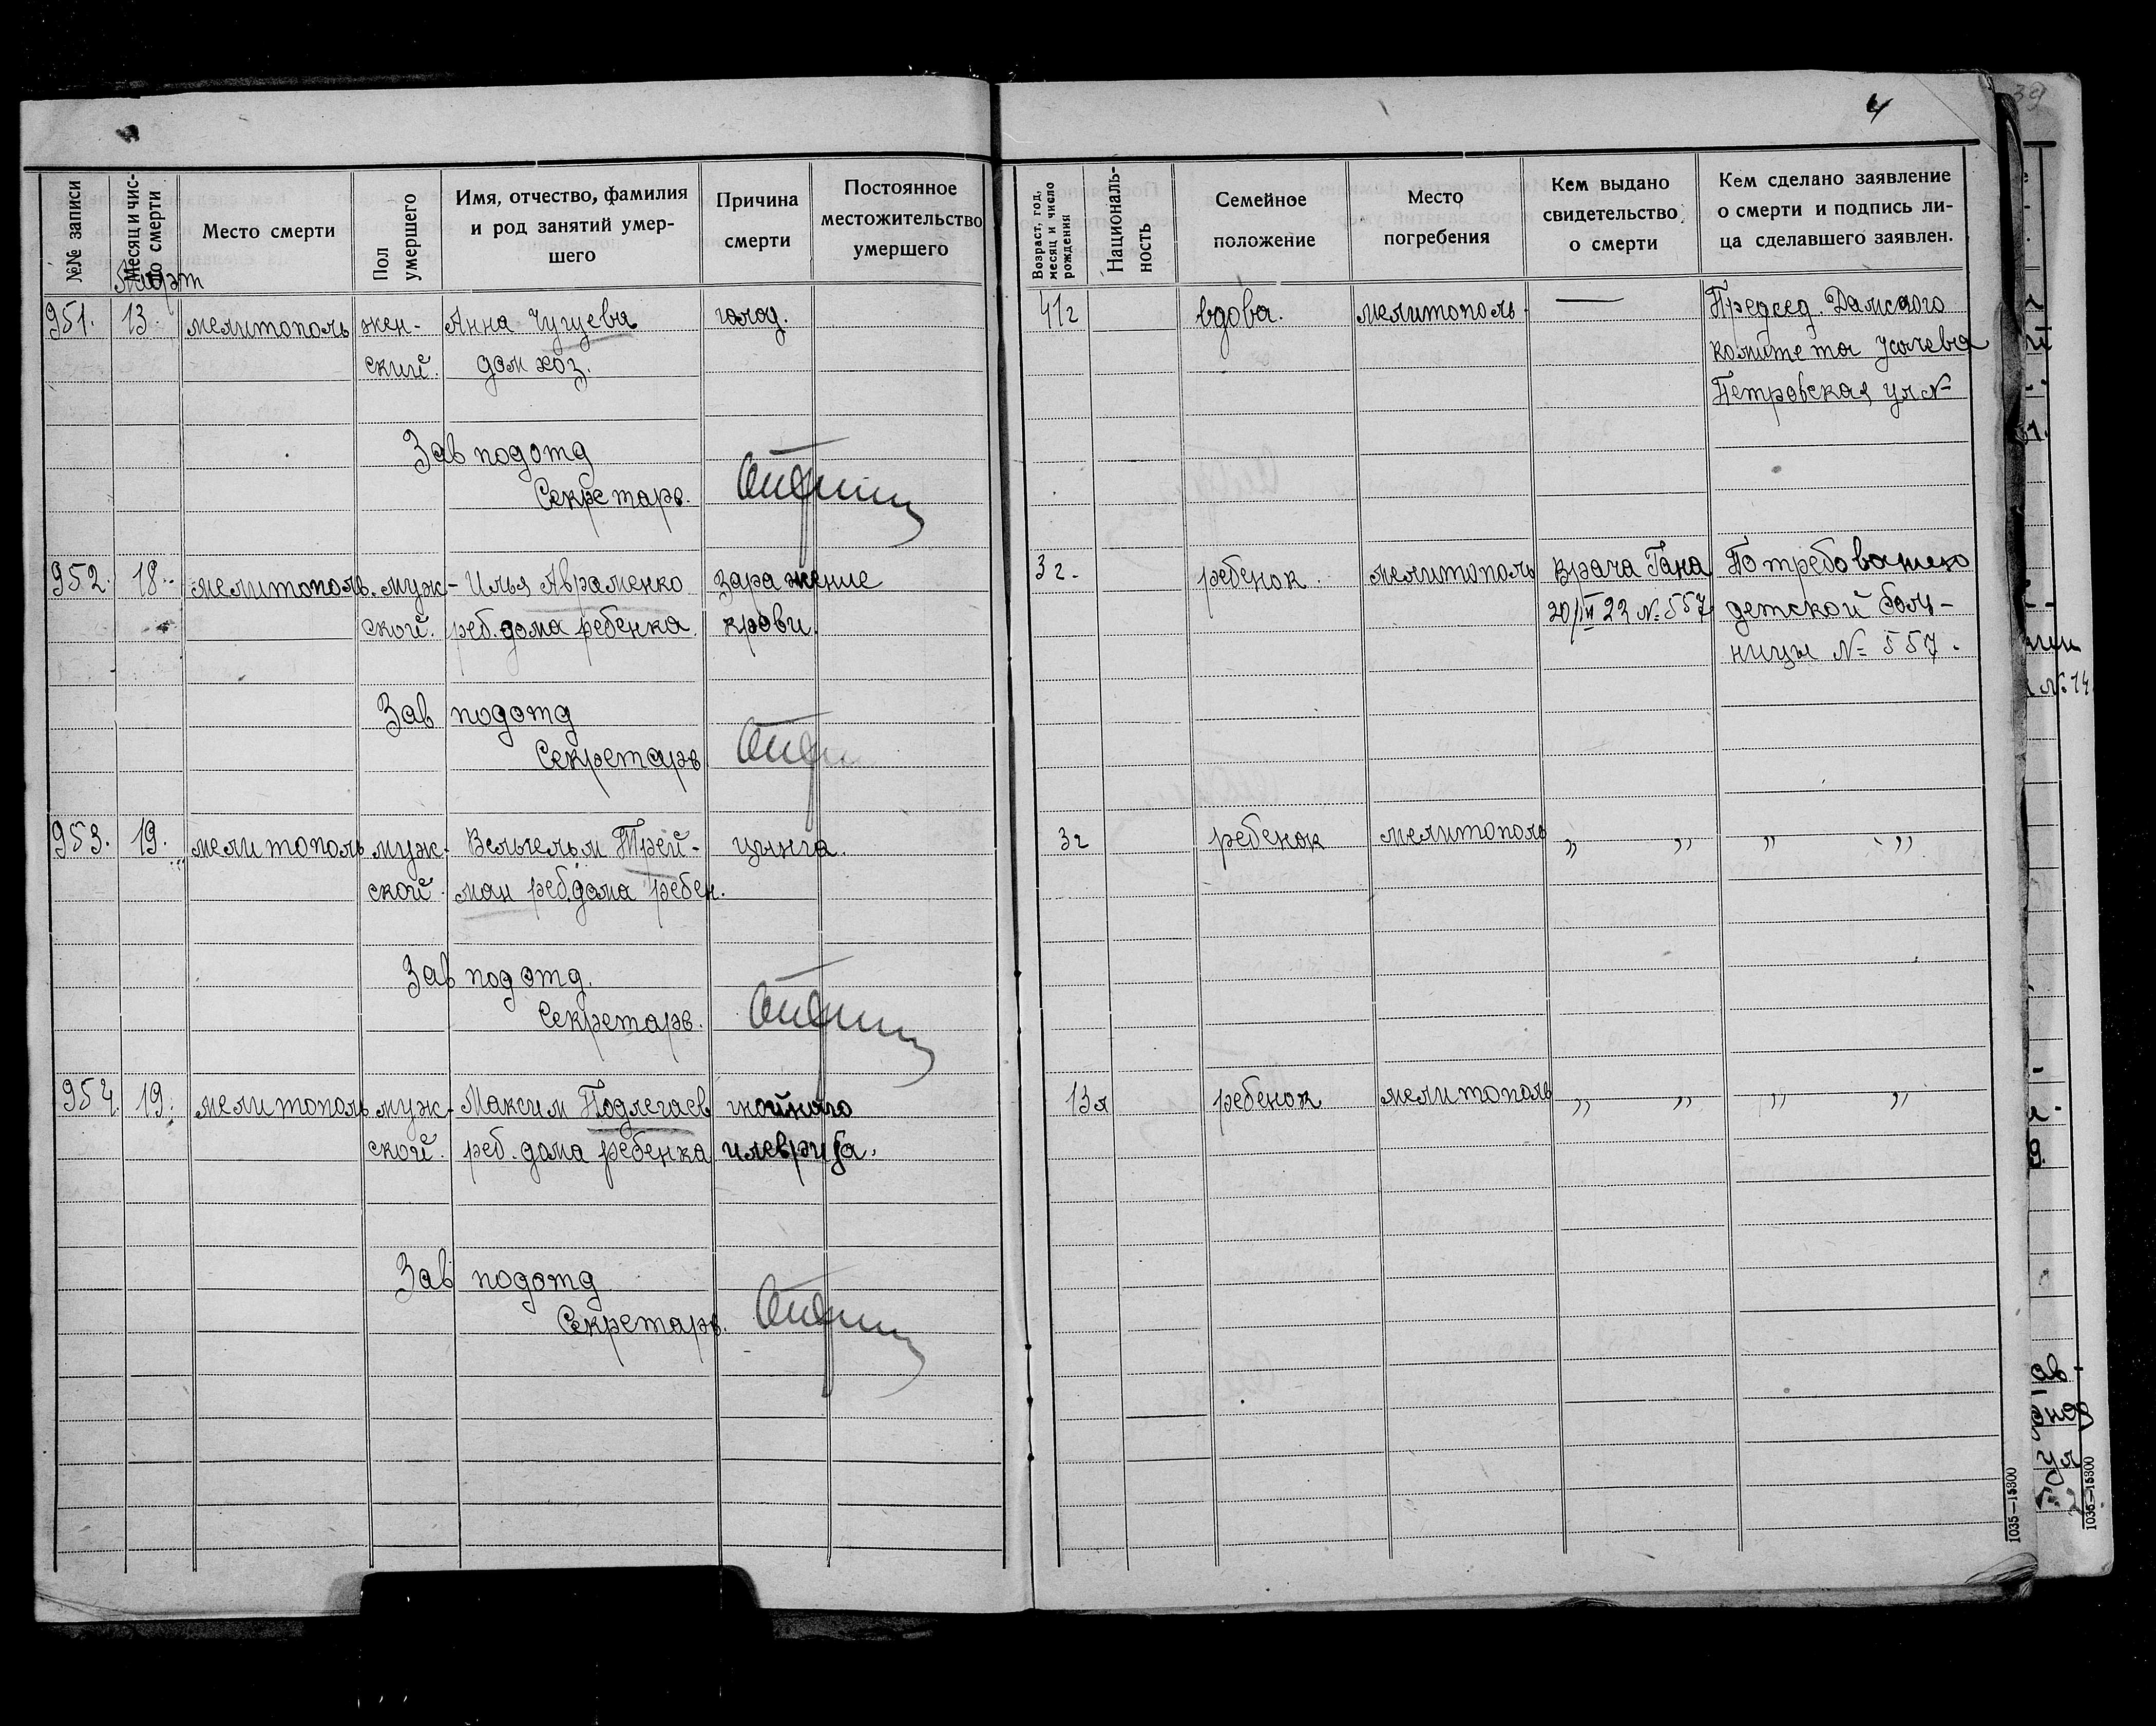 4
39
№№ записи
Месяц и чис-
ло смерти
Место смерти
Пол
умершего
Имя, отчество, фамилия
и род занятий умер-
шего
Причина
смерти
Постоянное
местожительство
умершего
Возраст, год,
месяц и число
рождения
Националь-
ность
Семейное
положение
Место
погребения
Кем выдано
свидетельство
о смерти
Кем сделано заявление
о смерти и подпись ли-
ца сделавшего заявлен.
Март
951. 13. мелитополь жен- Анна Чугуева голод. 41г вдова. мелитополь. — Председ. Домского
ский. дом хоз. комитета Усачева
Петровская ул №
Зав подотд
Секретарь.
952. 18. мелитополь. муж- Илья Авраменко заражение 3г. ребенок. мелитополь Врача Гана По требованию
ской. реб. дома ребенка. крови. 20/III 23 № 557 детской боль-
ницы № 557.
Зав подотд
Секретарь
953. 19. мелитополь муж- Вельгельм Трей- цынга. 3г ребенок мелитополь „ „ „ „
ской. ман реб. дома ребен.
Зав подотд.
Секретарь.
954. 19. мелитополь муж- Максим Подлегаев гнойного 13л ребенок мелитополь „ „ „ „
ской. реб. дома ребенка плеврита.
Зав подотд
Секретарь.
1035—15300
1035—15300